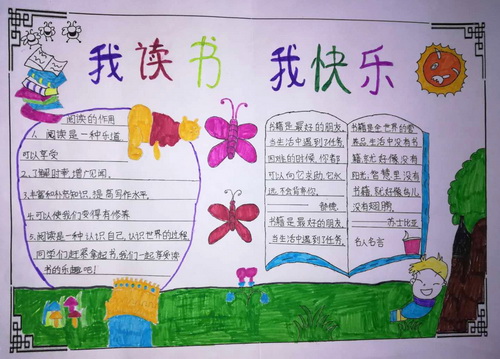 我读书 我快乐
阅读的作用
1、阅读是一种乐道
可以享受
2、了解时带,增广见闻、
3、丰富和补充知识、提高写作水平、
4、可以使我们变得有修养
5、阅读是一种认识自己、认识世界的过程、
同学们赶紧拿起书,我们一起享受读
书的乐趣吧!
书籍是最好的朋友,
当生活中遇到了任务
困难的时候,你都
可以向它求助,它永
远不会背弃你、
——都德、
书籍是最好的朋友,
当生活中遇到了任务,
书籍是全世界的营
养品、生活中没有书
籍就好像没有
阳光,智慧里没有
书籍、就好像鸟儿
没有翅膀、
——苏士比亚
名人名言